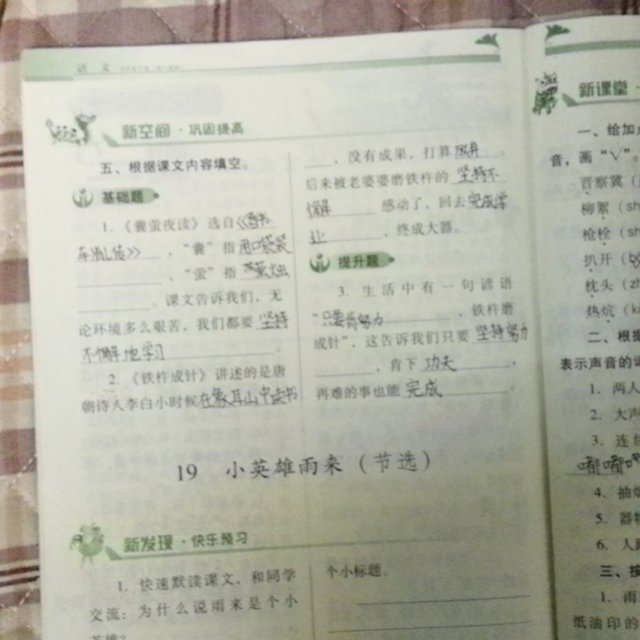 语 文
新空间·巩固提高
五、根据课文内容填空。
基础题
1. 《囊萤夜读》选自《晋书
车胤传》,“囊”指用口袋装
,“萤”指萤火虫
。课文告诉我们,无
论环境多么艰苦,我们都要坚持
不懈地学习。
2. 《铁杵成针》讲述的是唐
朝诗人李白小时候在象耳山中读书
,没有成果,打算放弃,
后来被老婆婆磨铁杵的坚持不
懈 感动了,回去完成学
业,终成大器。
提升题
3. 生活中有一句谚语
“只要有努力,铁杵磨
成针”,这告诉我们只要坚持努力
,肯下功夫,
再难的事也能完成
19 小英雄雨来(节选)
新发现·快乐预习
1. 快速默读课文,和同学
交流:为什么说雨来是个小
英雄?
个小标题。
新课堂·
一、给加
音,画“√”
晋察冀(
柳絮(sh
枪栓(sh
扒开(b
枕头(zh
热炕(k
二、根
表示声音的词
1. 两人
2. 大声
3. 连
4. 抽
5. 器
6. 人
三、按
1. 雨
纸油印的